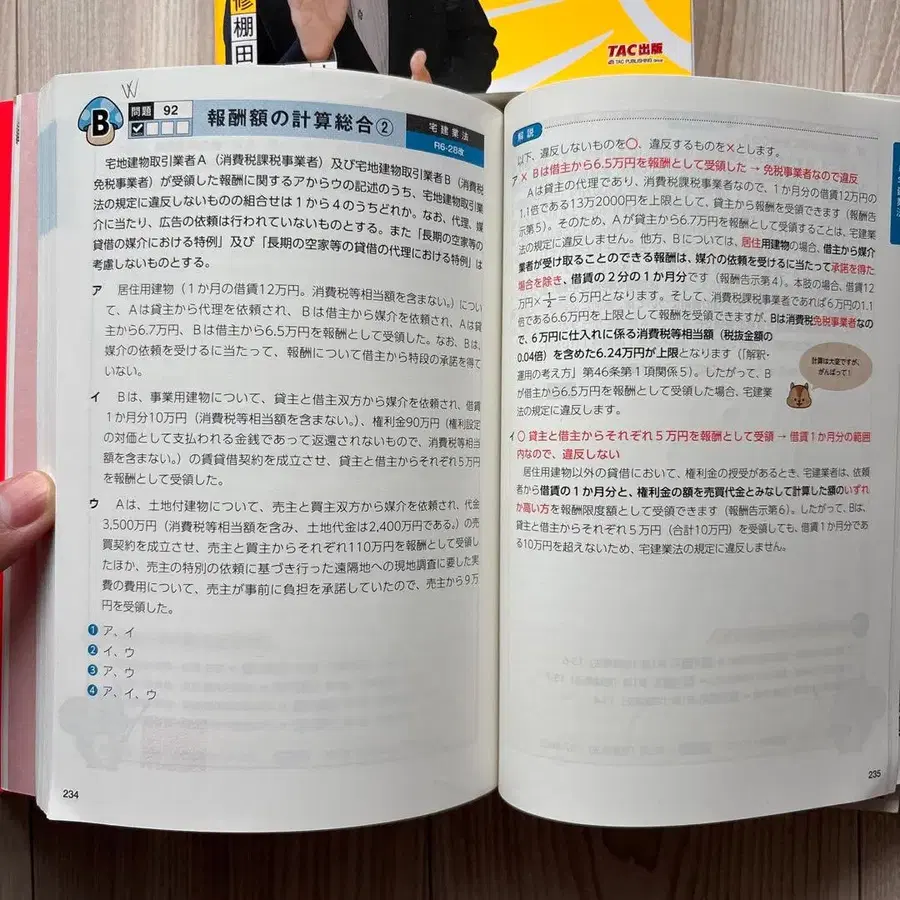 修棚田
TAC出版
TAC PUBLISHING Group
W
B
問題 92
報酬額の計算総合②
宅建業法
R6-28改
宅地建物取引業者A（消費税課税事業者）及び宅地建物取引業者B（消費税
免税事業者）が受領した報酬に関するアからウの記述のうち、宅地建物取引業
法の規定に違反しないものの組合せは1から4のうちどれか。なお、代理、媒
介に当たり、広告の依頼は行われていないものとする。また「長期の空家等の
貸借の媒介における特例」及び「長期の空家等の貸借の代理における特例」は
考慮しないものとする。
ア 居住用建物（1か月の借賃12万円。消費税等相当額を含まない。）につい
て、Aは貸主から代理を依頼され、Bは借主から媒介を依頼され、Aは貸
主から6.7万円、Bは借主から6.5万円を報酬として受領した。なお、Bは、
媒介の依頼を受けるに当たって、報酬について借主から特段の承諾を得て
いない。
イ Bは、事業用建物について、貸主と借主双方から媒介を依頼され、借賃
1か月分10万円（消費税等相当額を含まない。）、権利金90万円（権利設定
の対価として支払われる金銭であって返還されないもので、消費税等相当
額を含まない。）の賃貸借契約を成立させ、貸主と借主からそれぞれ5万円
を報酬として受領した。
ウ Aは、土地付建物について、売主と買主双方から媒介を依頼され、代金
3,500万円（消費税等相当額を含み、土地代金は2,400万円である。）の売
買契約を成立させ、売主と買主からそれぞれ110万円を報酬として受領し
たほか、売主の特別の依頼に基づき行った遠隔地への現地調査に要した実
費の費用について、売主が事前に負担を承諾していたので、売主から9万
円を受領した。
1 ア、イ
2 イ、ウ
3 ア、ウ
4 ア、イ、ウ
234
解説
以下、違反しないものを〇、違反するものを×とします。
ア × Bは借主から6.5万円を報酬として受領した → 免税事業者なので違反
Aは貸主の代理であり、消費税課税事業者なので、1か月分の借賃12万円の
1.1倍である13万2000円を上限として、貸主から報酬を受領できます（報酬告
示第5）。そのため、Aが貸主から6.7万円を報酬として受領することは、宅建業
法の規定に違反しません。他方、Bについては、居住用建物の場合、借主から媒介
業者が受け取ることのできる報酬は、媒介の依頼を受けるに当たって承諾を得た
場合を除き、借賃の2分の1か月分です（報酬告示第4）。本肢の場合、借賃12
万円×1/2＝6万円となります。そして、消費税課税事業者であれば6万円の1.1
倍である6.6万円を上限として報酬を受領できますが、Bは消費税免税事業者なの
で、6万円に仕入れに係る消費税等相当額（税抜金額の
0.04倍）を含めた6.24万円が上限となります（「解釈・
運用の考え方」第46条第1項関係5）。したがって、B
が借主から6.5万円を報酬として受領した場合、宅建業
法の規定に違反します。
計算は大変ですが、
がんばって！
イ 〇 貸主と借主からそれぞれ5万円を報酬として受領 → 借賃1か月分の範囲
内なので、違反しない
居住用建物以外の貸借において、権利金の授受があるとき、宅建業者は、依頼
者から借賃の1か月分と、権利金の額を売買代金とみなして計算した額のいずれ
か高い方を報酬限度額として受領できます（報酬告示第6）。したがって、Bは、
貸主と借主からそれぞれ5万円（合計10万円）を受領しても、借賃1か月分であ
る10万円を超えないため、宅建業法の規定に違反しません。
235